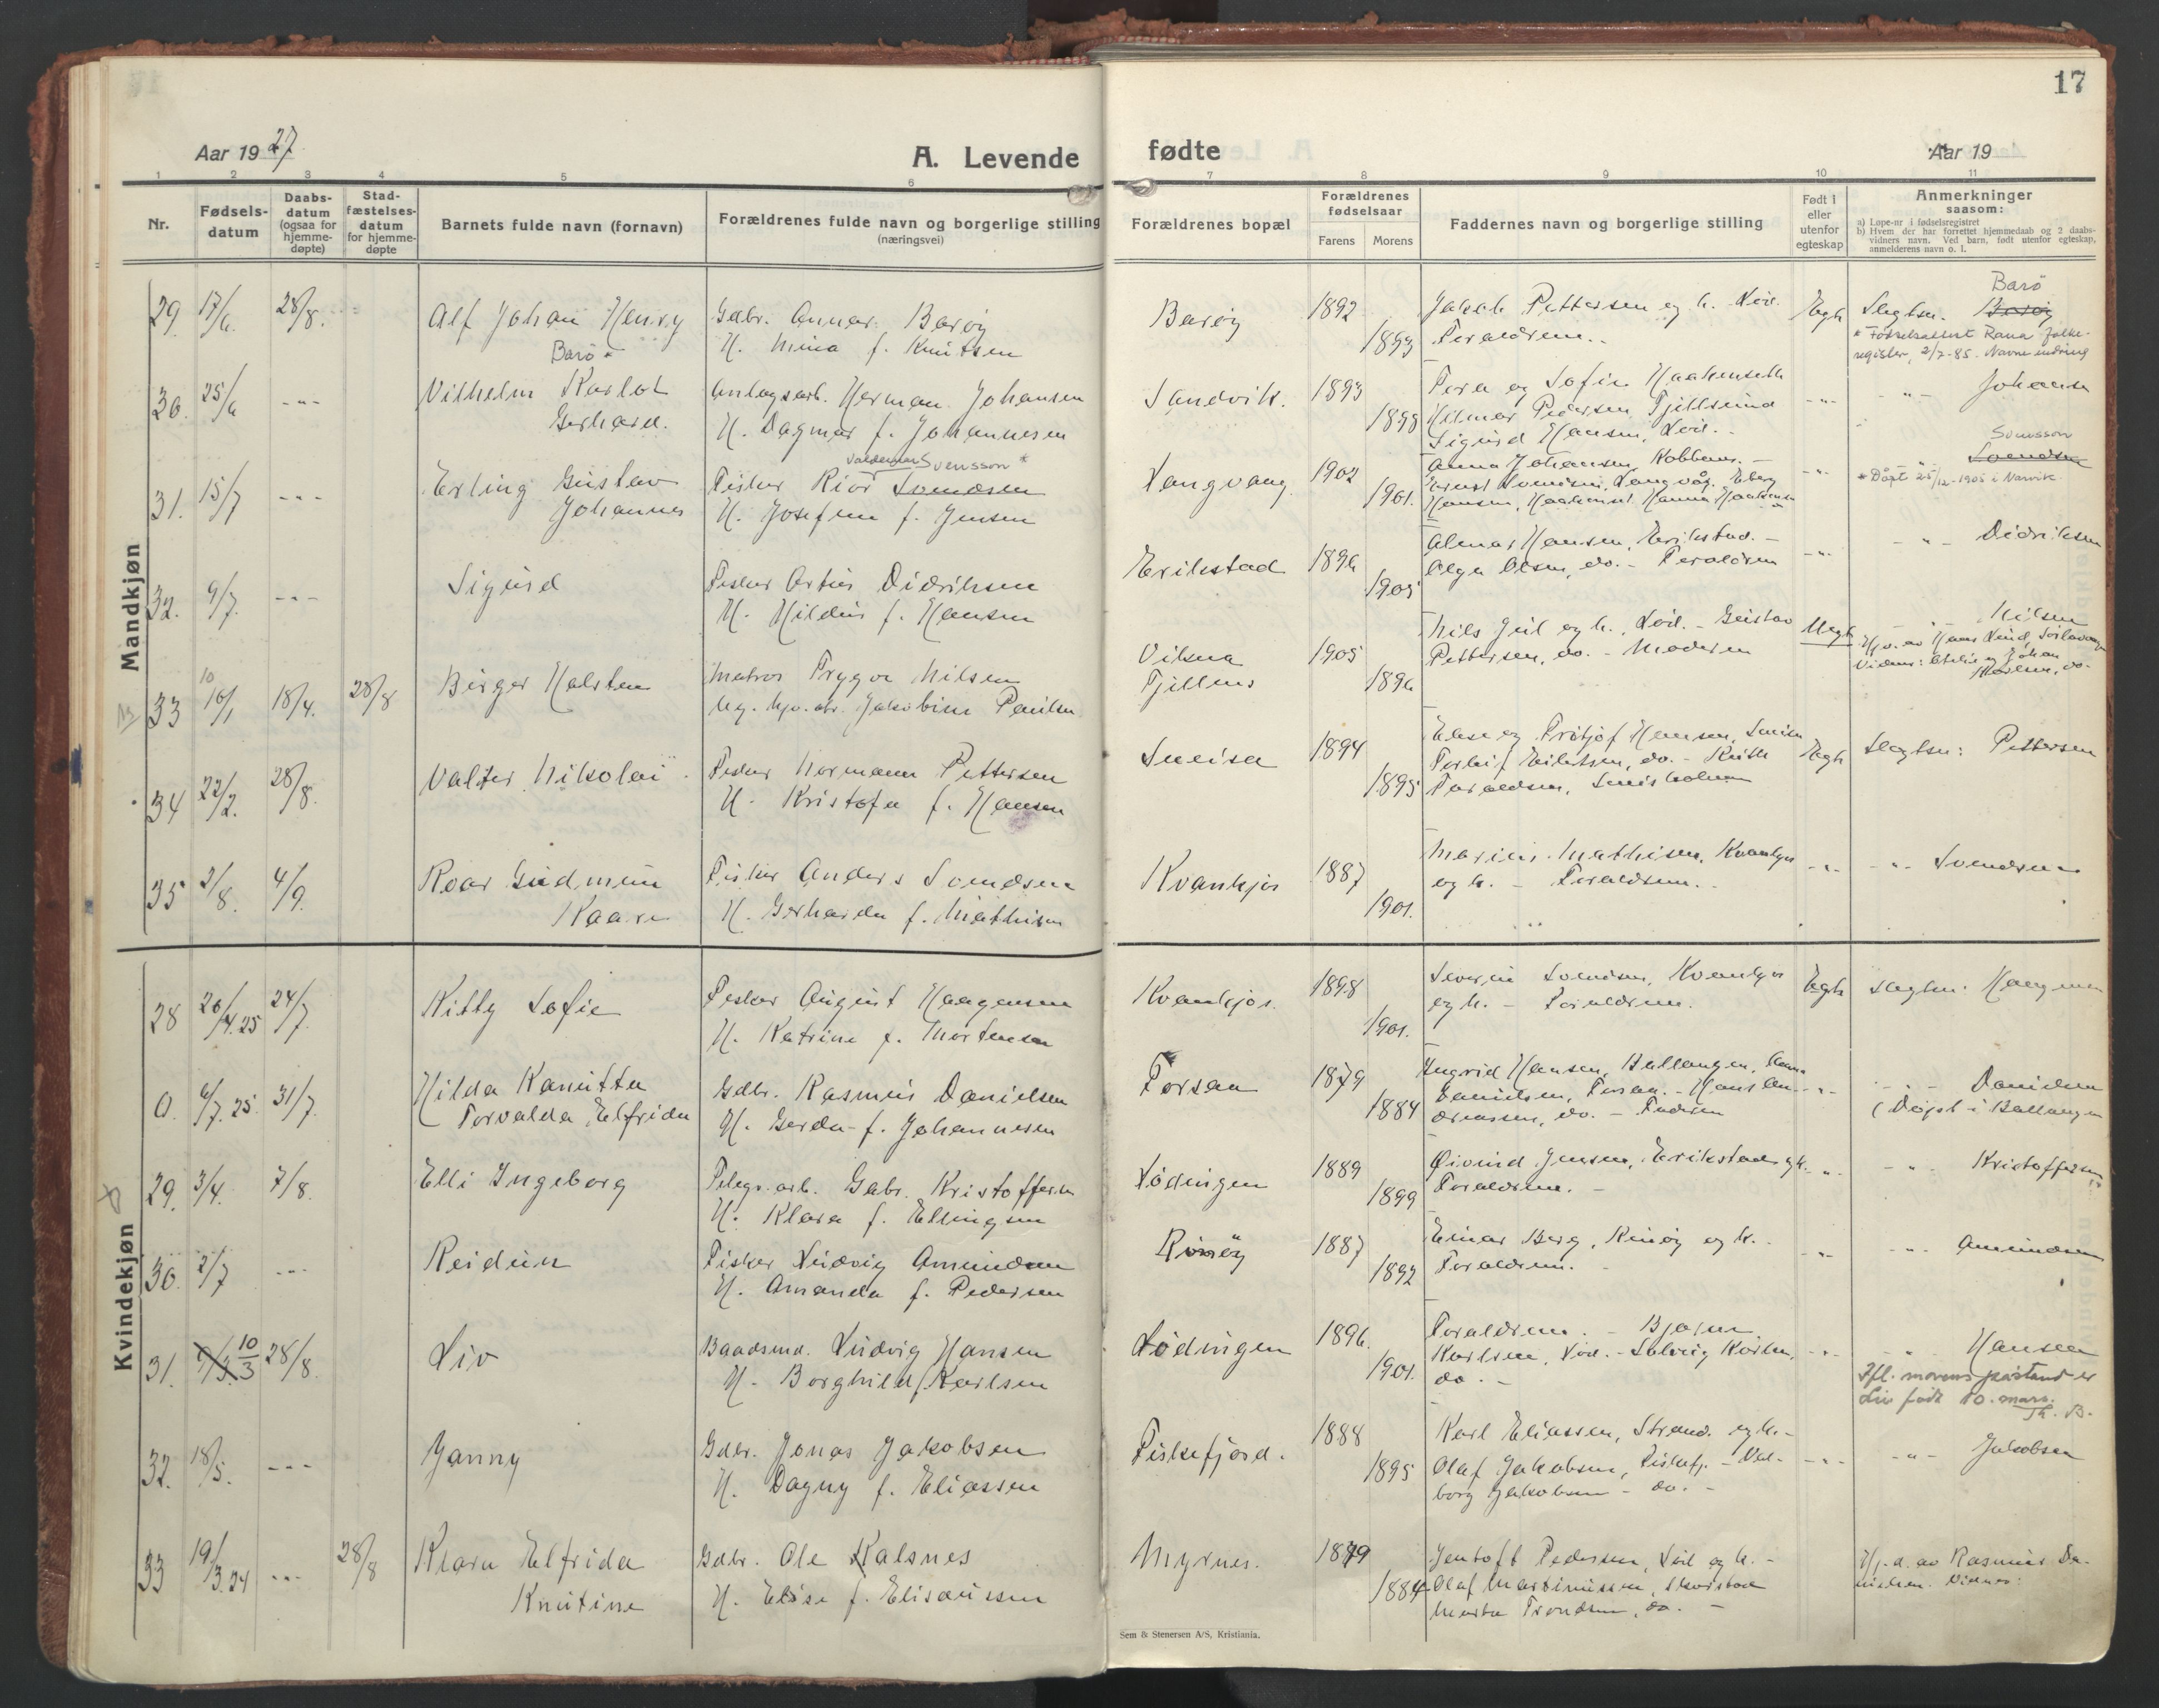 17
Aar 1927
A. Levende
fødte
Aar 19
1 2 3 4 5 6 7 8 9 10 11
Nr.
Fødsels-
datum
Daabs-
datum
(ogsaa for
hjemme-
døpte)
Stad-
fæstelses-
datum
for hjemme-
døpte
Barnets fulde navn (fornavn)
Forældrenes fulde navn og borgerlige stilling
(næringsvei)
Forældrenes bopæl
Forældrenes
fødselsaar
Farens Morens
Faddernes navn og borgerlige stilling
Født i
eller
utenfor
egteskap
Anmerkninger
saasom:
a) Løpe-nr i fødselsregistret
b) Hvem der har forrettet hjemmedaab og 2 daabs-
vidners navn. Ved barn, født utenfor egteskap,
anmelderens navn o. l.
Mandkjøn
29. 17/6. 28/8. Alf Johan Henry
Barö *
Gdbr. Annar Barøy
H. Mina f. Knutsen
Barøy 1892 1893
Jakob Pettersen og h. Löd.
Foraldrene.
Egte Slegtsn. Barøy
Barö
* Fødselsattest Rana folke-
register, 2/7-85. Navneendring
30. 25/6 -"- Vilhelm Karlot
Gerhard.
Anlegsarb. Herman Johansen
H. Dagmar f. Johannesen
Sandvik. 1893 1898
Tora og Sofie Haakenseth
Hilmar Pedersen, Fjellsund
Sigurd Hansen, Löd. -
-"- -"- Johansen
31. 15/7 -"- Erling Gustav
Johannes
Valdemar Svensson *
Fisker Rior Svendsen
H. Josefine f. Jensen
Langvaag. 1902 1901.
Anna Johansen, Kobbenes. -
Ernst Svendsen, Langvåg. Eberg
Hansen, Haakenset. Hanna Haakensen
-"- Svendsen
Svensson
* Döpt 25/12-1905 i Narvik
32. 9/7. -"- Sigurd
Fisker Artur Didriksen
H. Hildur f. Hansen
Erikstad 1896 1905
Almar Hansen, Erikstad. -
Olga Olsen, do. - Foraldren
-"- -"- Didriksen
33 10
16/1 18/4. 28/8 Birger Halsten
Matros Trygve Nilsen
Ug. hjv. arb. Jakobine Paulsen
Viksna
Fjellnes 1905 1896
Nils Jul og h., Löd. - Gustav
Pettersen, do. - Moderen
Uegte -"- Nilsen
34 22/2. 28/8. Valter Nikolai
Fisker Normann Pettersen
H. Kristofa f. Hansen
Sneisa 1894 1895
Else og Fritjof Hansen, Sneisa
Torleif Eilertsen, do. - Ruth
Toraldsen, Sneisholmen
Egte Slegtsn: Pettersen
35 2/8. 4/9. Roar Gudmun
Kaare
Fisker Anders Svendsen
H. Gerharda f. Mathisen
Kvankjos 1887 1901.
Marius Mathisen, Kvankjos
og h. - Foraldrene. -
-"- -"- Svendsen
Kvindekjøn
28 20/4.25 24/7. Kitty Sofie
Fisker August Haagensen
H. Katrine f. Mortensen
Kvankjos. 1898 1901.
Severin Svendsen, Kvankjos
og h. - Foraldrene.
Egte Slegtsn: Haagensen
0. 6/7.25. 31/7. Hilda Kamitta
Torvalda Elfrida
Gdbr. Rasmus Danielsen
H. Gerda f. Johannesen
Forsaa 1879 1884
Ingrid Hansen, Ballangen, Anna
Danielsen, Forsaa. - Hans An-
dreassen, do. - Faderen
-"- -"- Danielsen
(Døpt i Ballangen
29. 3/4. 7/8. Elli Ingeborg
Telegr. arb. Gabr. Kristoffersen
H. Klara f. Ellingsen
Lödingen 1889 1899
Øivind Jensen, Erikstad og h.
Foraldrene. -
-"- -"- Kristoffersen
30. 2/7 -"- Reidun
Fisker Ludvig Amundsen
H. Amanda f. Pedersen
Rinöy 1887 1892
Einar Berg, Rinöy og h. -
Foraldrene. -
-"- -"- Amundsen
31. 9/3. 10/3 28/8. Liv
Baadsmd. Ludvig Hansen
H. Borghild f. Karlsen
Lödingen 1896. 1901.
Foraldrene. - Bjarne
Karlsen, Löd. - Solveig Karlsen,
do. -
-"- -"- Hansen
Ifl. morens påstand er
Liv född 10. mars.
Th. B.
32. 18/5. -"- Janny
Gdbr. Jonas Jakobsen
H. Dagny f. Eliassen
Fiskefjord. 1888 1895
Karl Eliassen, Strand. og h. -
Olaf Jakobsen, Fiskefj. - Val-
borg Jakobsen - do. -
-"- -"- Jakobsen
33 19/3.24 -"- 28/8 Klara Elfrida
Knutine
Gdbr. Ole Kalsnes
H. Elise f. Elisæussen
Myrnes. 1879 1884
Jentoft Pedersen, Löd og h. -
Olaf Martinussen, Skarstad
Marta Trondsen, do. -
Hj. d. av Rasmus Da-
nielsen. Vidner:
Sem & Stenersen A/S, Kristiania.